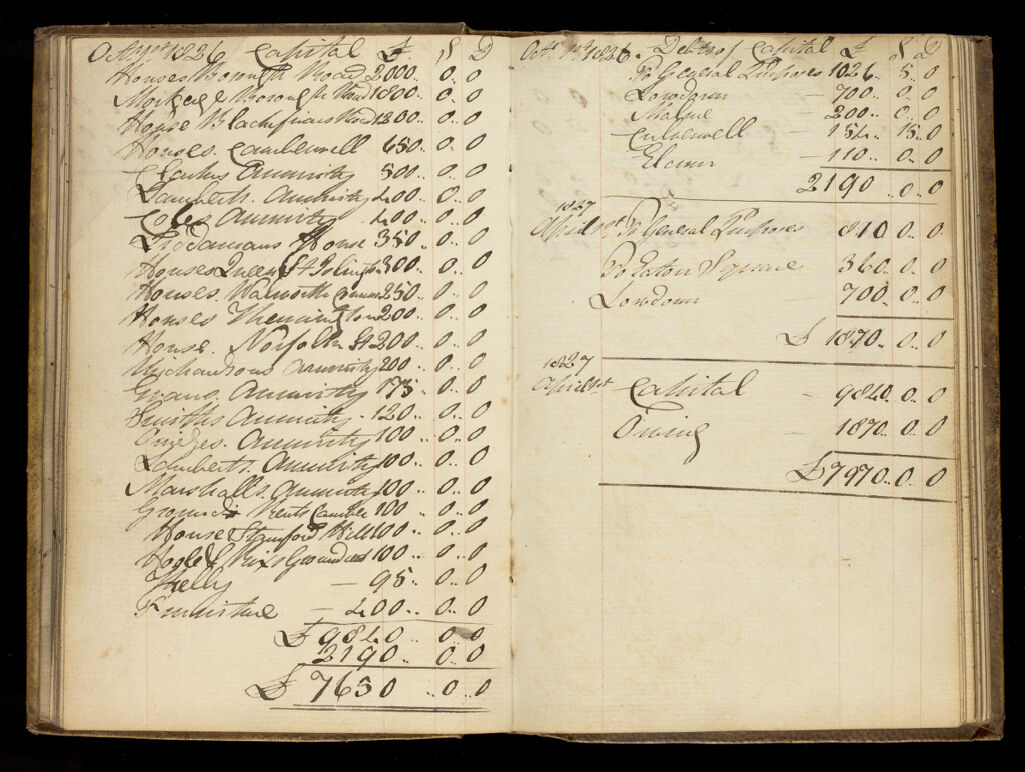 Octr 1st 1826 Capital £ S D
Houses Borough Road 2000.. 0.. 0
Mortgage Borough Road 1800.. 0.. 0
House Blackfriars Road 1200.. 0.. 0
Houses. Camberwell 650.. 0.. 0
Clarkes Annuity 500.. 0.. 0
Lamberts. Annuity 400.. 0.. 0
Coles Annuity 400.. 0.. 0
House 350.. 0.. 0
Houses Queen St Islington 300.. 0.. 0
Houses. Walworth Common 250.. 0.. 0
Houses Kennington 200.. 0.. 0
House. Norfolk St 200.. 0.. 0
Richardsons Annuity 200.. 0.. 0
Evans. Annuity 175.. 0.. 0
Smiths Annuity - 120.. 0.. 0
Annuity 100.. 0.. 0
Lamberts. Annuity 100.. 0.. 0
Marshalls. Annuity 100.. 0.. 0
Ground Rents Camber 100.. 0.. 0
House Stamford Hill 100.. 0.. 0
Ground 100.. 0.. 0
Kelly — 95.. 0.. 0
Furniture — 400.. 0.. 0
£ 9840.. 0.. 0
2190.. 0.. 0
£ 7650.. 0.. 0
Octr 1st 1826. Debts of Capital £ S D
To General Purposes 1026.. 5.. 0
Lowdown — 700.. 0.. 0
200.. 0.. 0
— 154.. 15.. 0
— 110.. 0.. 0
2190.. 0.. 0
1827
April 1st To General Purposes 810.. 0.. 0
To Eaton Square 360.. 0.. 0
Lowdown — 700.. 0.. 0
£ 1870.. 0.. 0
1827
April 1st Capital — 9840.. 0.. 0
Owing — 1870.. 0.. 0
£ 7970.. 0.. 0